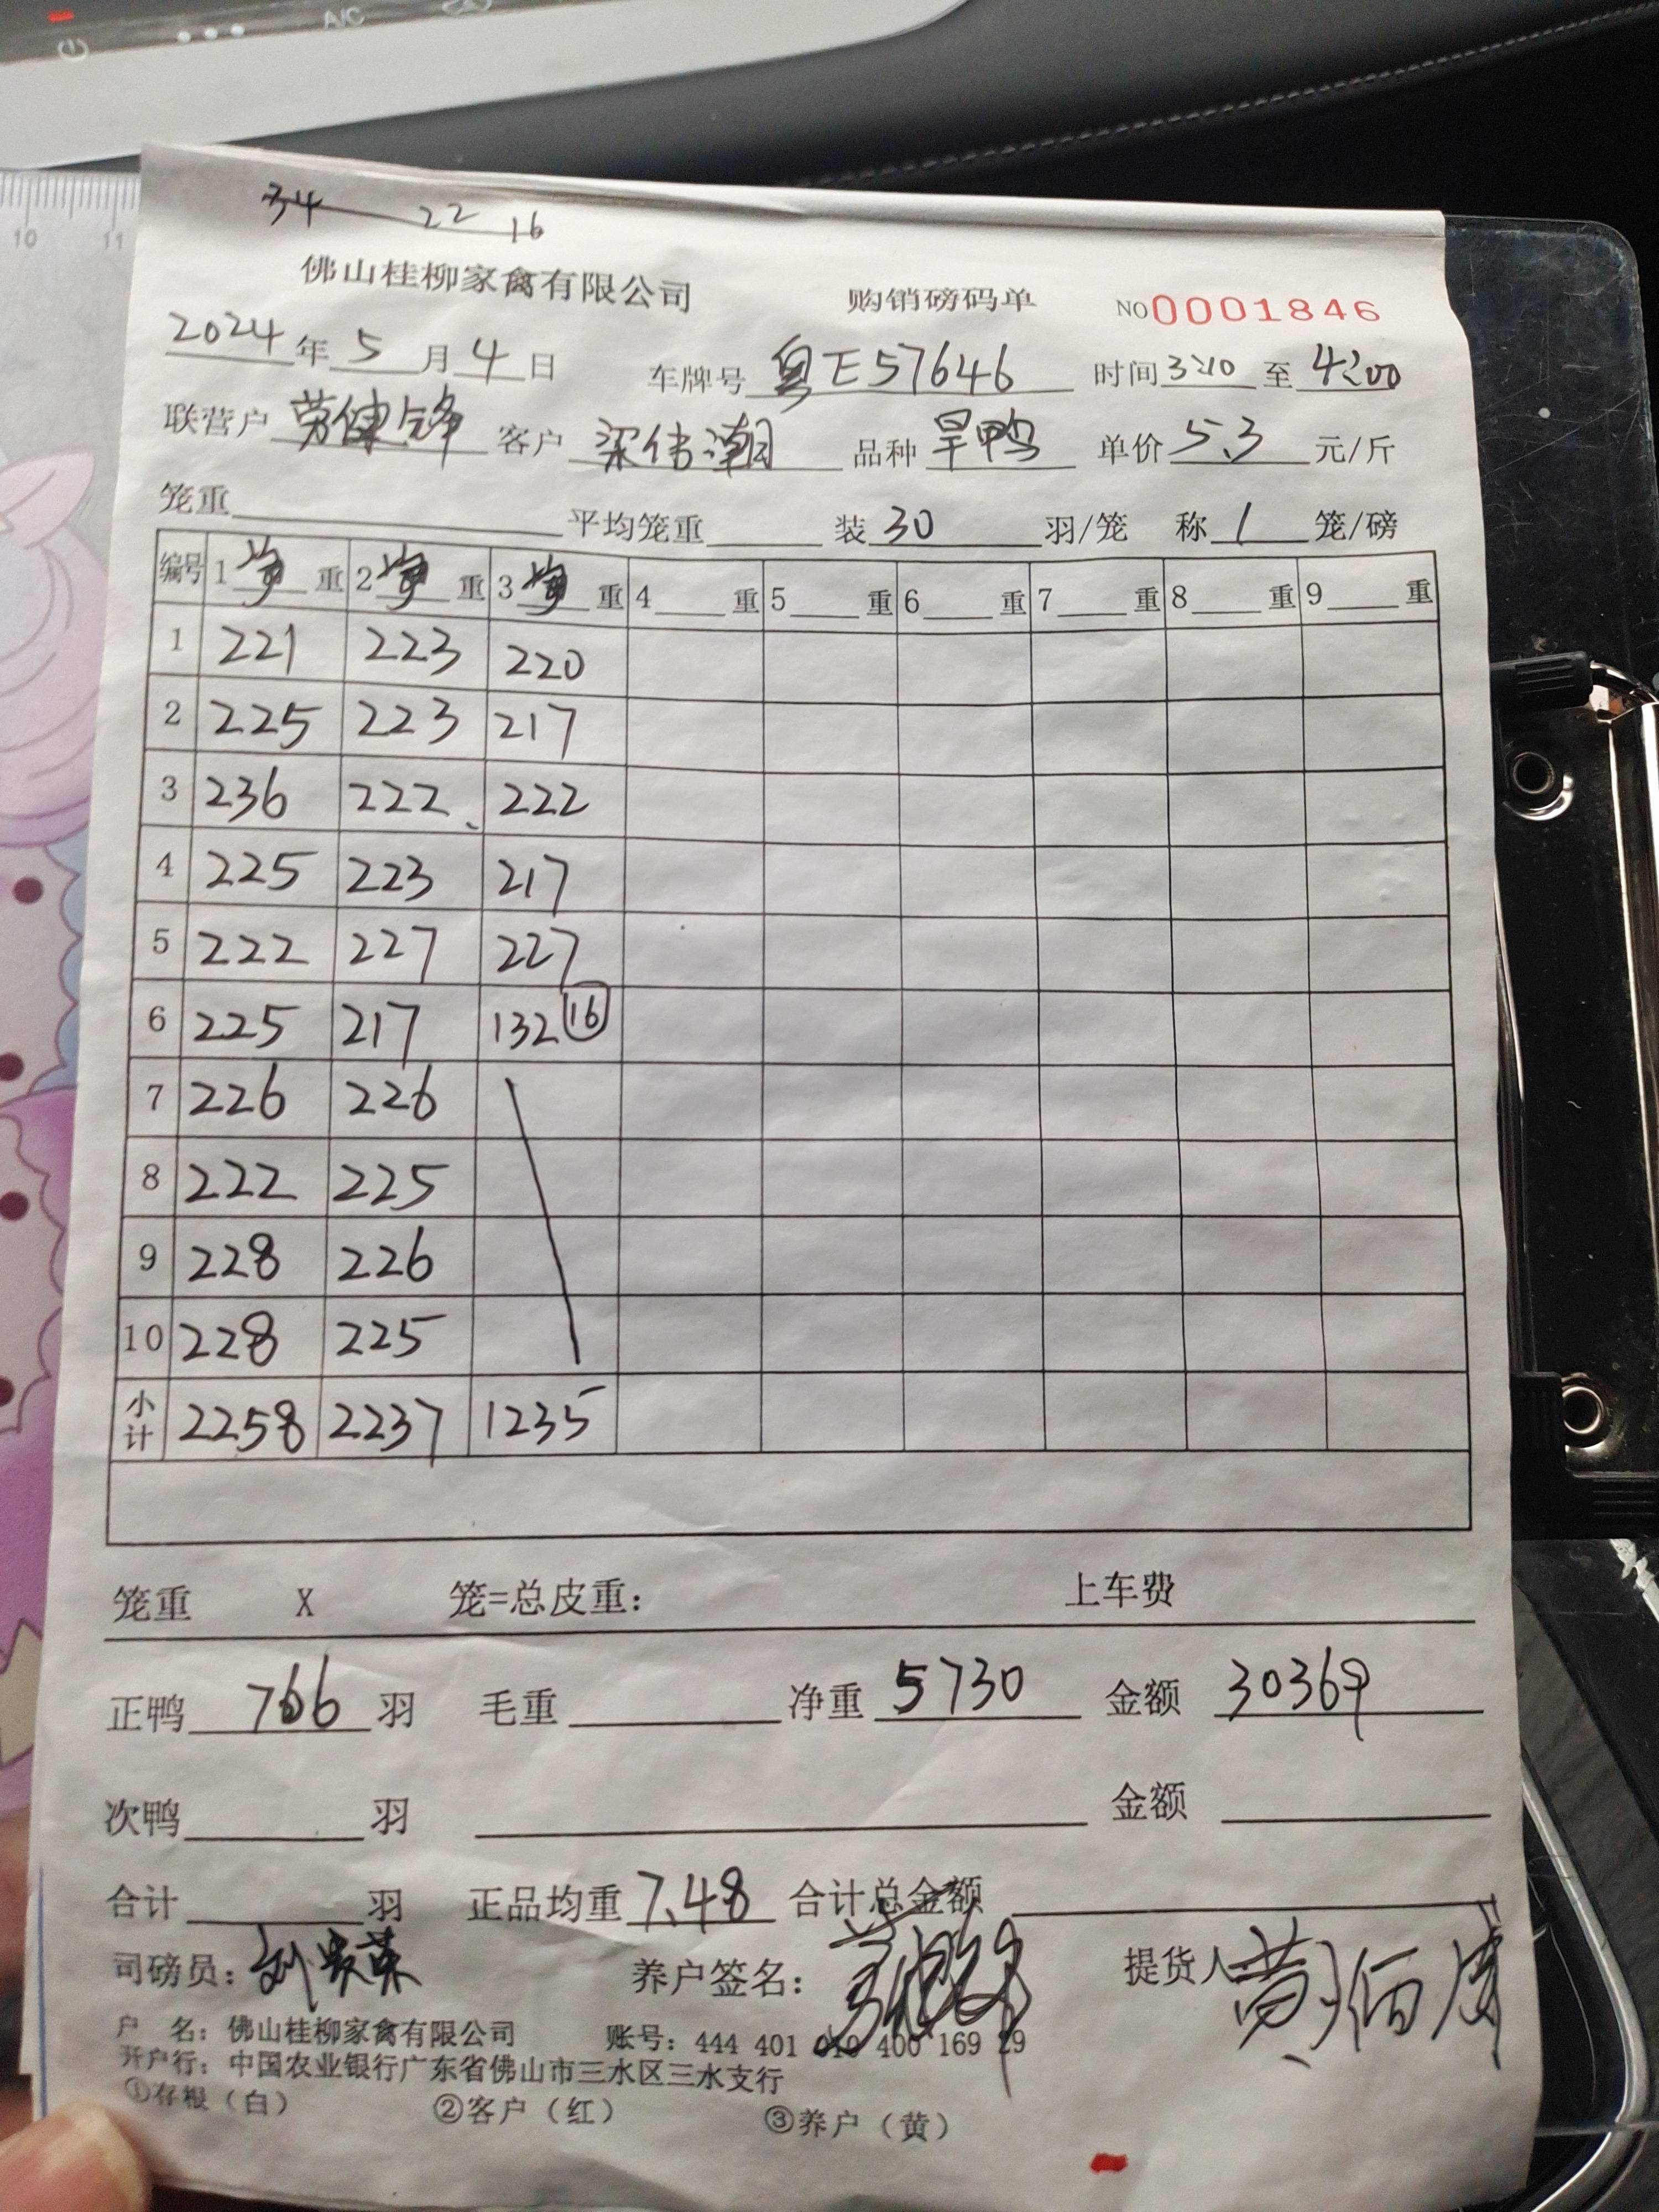 A/C
10 11
34 22 16
佛山桂柳家禽有限公司 购销磅码单 NO 0001846
2024年5月4日 车牌号 粤E57646 时间 3:10 至 4:00
联营户 劳健锋 客户 梁伟潮 品种 旱鸭 单价 5.3 元/斤
笼重 平均笼重 装 30 羽/笼 称 1 笼/磅
编号 1 重 2 重 3 重 4 重 5 重 6 重 7 重 8 重 9 重
1 221 223 220
2 225 223 217
3 236 222 222
4 225 223 217
5 222 227 227
6 225 217 132 16
7 226 226
8 222 225
9 228 226
10 228 225
小计 2258 2237 1235
笼重 X 笼=总皮重: 上车费
正鸭 766 羽 毛重 净重 5730 金额 30369
次鸭 羽 金额
合计 羽 正品均重 7.48 合计总金额
司磅员: 养户签名: 提货人
户 名: 佛山桂柳家禽有限公司 账号: 444 401 010 400 169 29
开户行: 中国农业银行广东省佛山市三水区三水支行
①存根（白） ②客户（红） ③养户（黄）